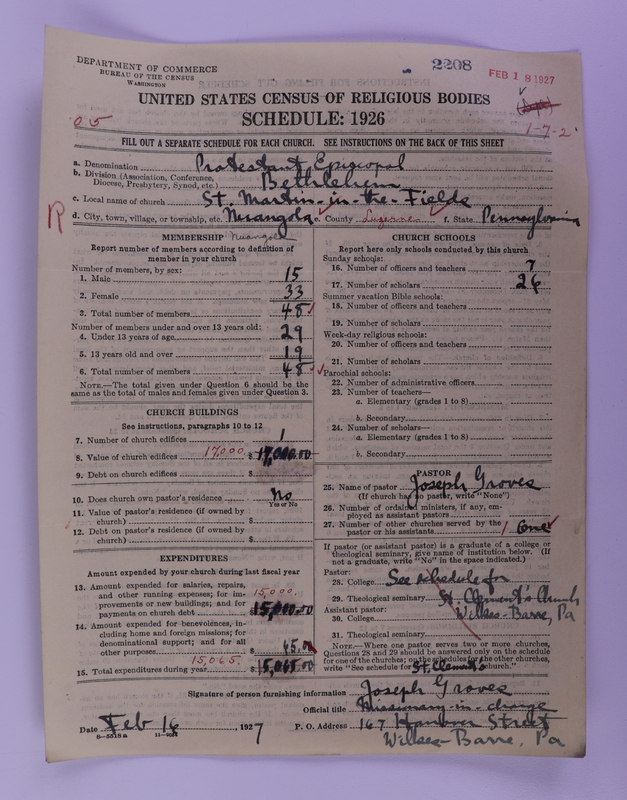 DEPARTMENT OF COMMERCE
BUREAU OF THE CENSUS
WASHINGTON
2208
FEB 18 1927
UNITED STATES CENSUS OF RELIGIOUS BODIES
SCHEDULE: 1926
05
1-7-2
FILL OUT A SEPARATE SCHEDULE FOR EACH CHURCH. SEE INSTRUCTIONS ON THE BACK OF THIS SHEET
a. Denomination Protestant Episcopal
b. Division (Association, Conference, Diocese, Presbytery, Synod, etc.) Bethlehem
c. Local name of church St. Martin-in-the-Fields
R
d. City, town, village, or township, etc. Nuangola e. County Luzerne f. State Pennsylvania
MEMBERSHIP Nuangola
Report number of members according to definition of
member in your church
Number of members, by sex:
1. Male 15
2. Female 33
3. Total number of members 48
Number of members under and over 13 years old:
4. Under 13 years of age 29
5. 13 years old and over 19
6. Total number of members 48
NOTE.—The total given under Question 6 should be the
same as the total of males and females given under Question 3.
CHURCH BUILDINGS
See instructions, paragraphs 10 to 12
7. Number of church edifices 1
8. Value of church edifices 17,000 $17,000.00
9. Debt on church edifices $
10. Does church own pastor's residence No
Yes or No
11. Value of pastor's residence (if owned by
church) $
12. Debt on pastor's residence (if owned by
church) $
EXPENDITURES
Amount expended by your church during last fiscal year
13. Amount expended for salaries, repairs,
and other running expenses; for im-
provements or new buildings; and for
payments on church debt 15,000. $15,000.00
14. Amount expended for benevolences, in-
cluding home and foreign missions; for
denominational support; and for all
other purposes $45.00
15. Total expenditures during year 15,045. $15,045.00
CHURCH SCHOOLS
Report here only schools conducted by this church
Sunday schools:
16. Number of officers and teachers 7
17. Number of scholars 26
Summer vacation Bible schools:
18. Number of officers and teachers
19. Number of scholars
Week-day religious schools:
20. Number of officers and teachers
21. Number of scholars
Parochial schools:
22. Number of administrative officers
23. Number of teachers—
a. Elementary (grades 1 to 8)
b. Secondary
24. Number of scholars—
a. Elementary (grades 1 to 8)
b. Secondary
PASTOR
25. Name of pastor Joseph Groves
(If church has no pastor, write "None")
26. Number of ordained ministers, if any, em-
ployed as assistant pastors
27. Number of other churches served by the
pastor or his assistants 1 One
If pastor (or assistant pastor) is a graduate of a college or
theological seminary, give name of institution below. (If
not a graduate, write "No" in the space indicated.)
Pastor:
28. College See schedule for
29. Theological seminary St. Clement's Church
Assistant pastor: Wilkes-Barre, Pa
30. College
31. Theological seminary
NOTE.—Where one pastor serves two or more churches,
Questions 28 and 29 should be answered only on the schedule
for one of the churches; on the schedules for the other churches,
write "See schedule for St. Clement's church."
Signature of person furnishing information Joseph Groves
Official title Missionary-in-charge
Date Feb 16 1927 P. O. Address 167 Hanover Street
8—5518a
Wilkes-Barre, Pa